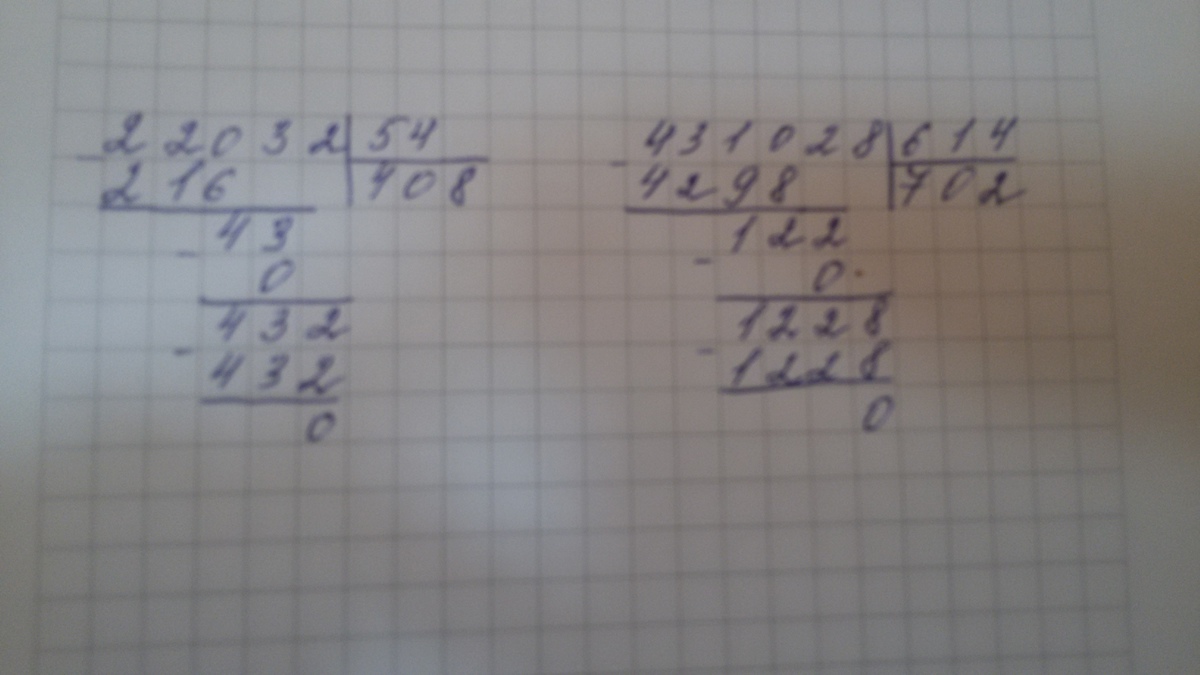 - 22032 | 54
216 | 408
- 43
0
- 432
432
0
- 431028 | 614
4298 | 702
- 122
0
- 1228
1228
0